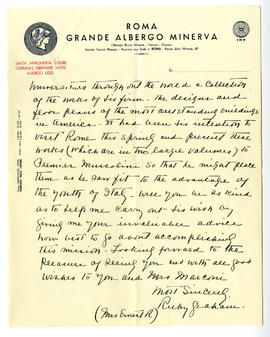 ROMA
GRANDE ALBERGO MINERVA
SANTA MARGHERITA LIGURE
MIRAMARE HOTEL
ALBERGO LIDO
Universities throughout the world a collection
of the works of his firm - the designs and
floor plans of the most outstanding buildings
in America. It had been his intention to
visit Rome this Spring and present these
works (which are in two large volumes) to
Premier Mussolini so that he might place
them as he saw fit to the advantage of
the youth of Italy. Will you be so kind
as to help me carry out his wish by
giving me your invaluable advice
how best to go about accomplishing
this mission. Looking forward to the
pleasure of seeing you and with all good
wishes to you and Mrs Marconi
Most Sincerely,
Ruby Graham.
(Mrs Ernest R)